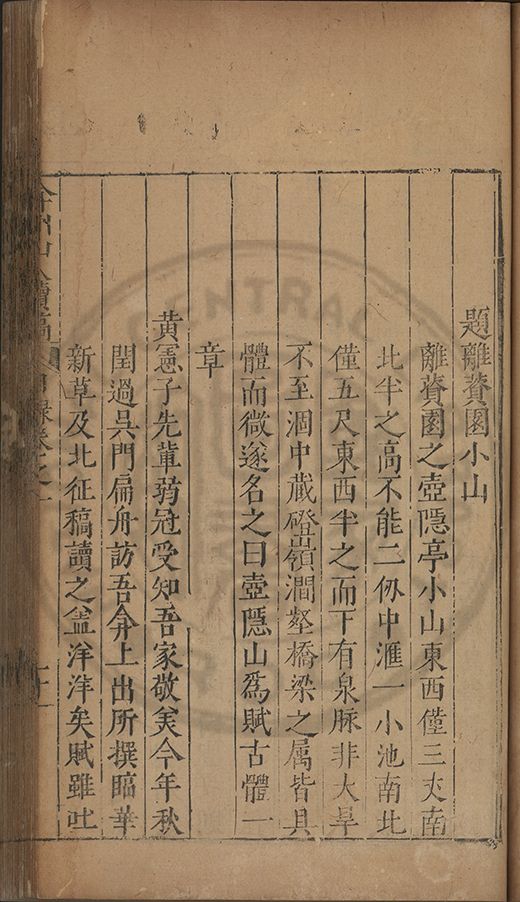 題離薋園小山
離薋園之壺隱亭小山東西僅三丈南
北半之高不能二仞中滙一小池南北
僅五尺東西半之而下有泉脉非大旱
不至涸中藏磴嶺澗壑橋梁之属皆具
體而微遂名之曰壺隱山爲賦古體一
章
黄憲子先軰弱冠受知吾家敬美今年秋
閏過吳門扁舟訪吾弇上出所撰臨華
新草及北征稿讀之盖洋洋矣賦雖吐
弇州山人續稿 目録卷之一